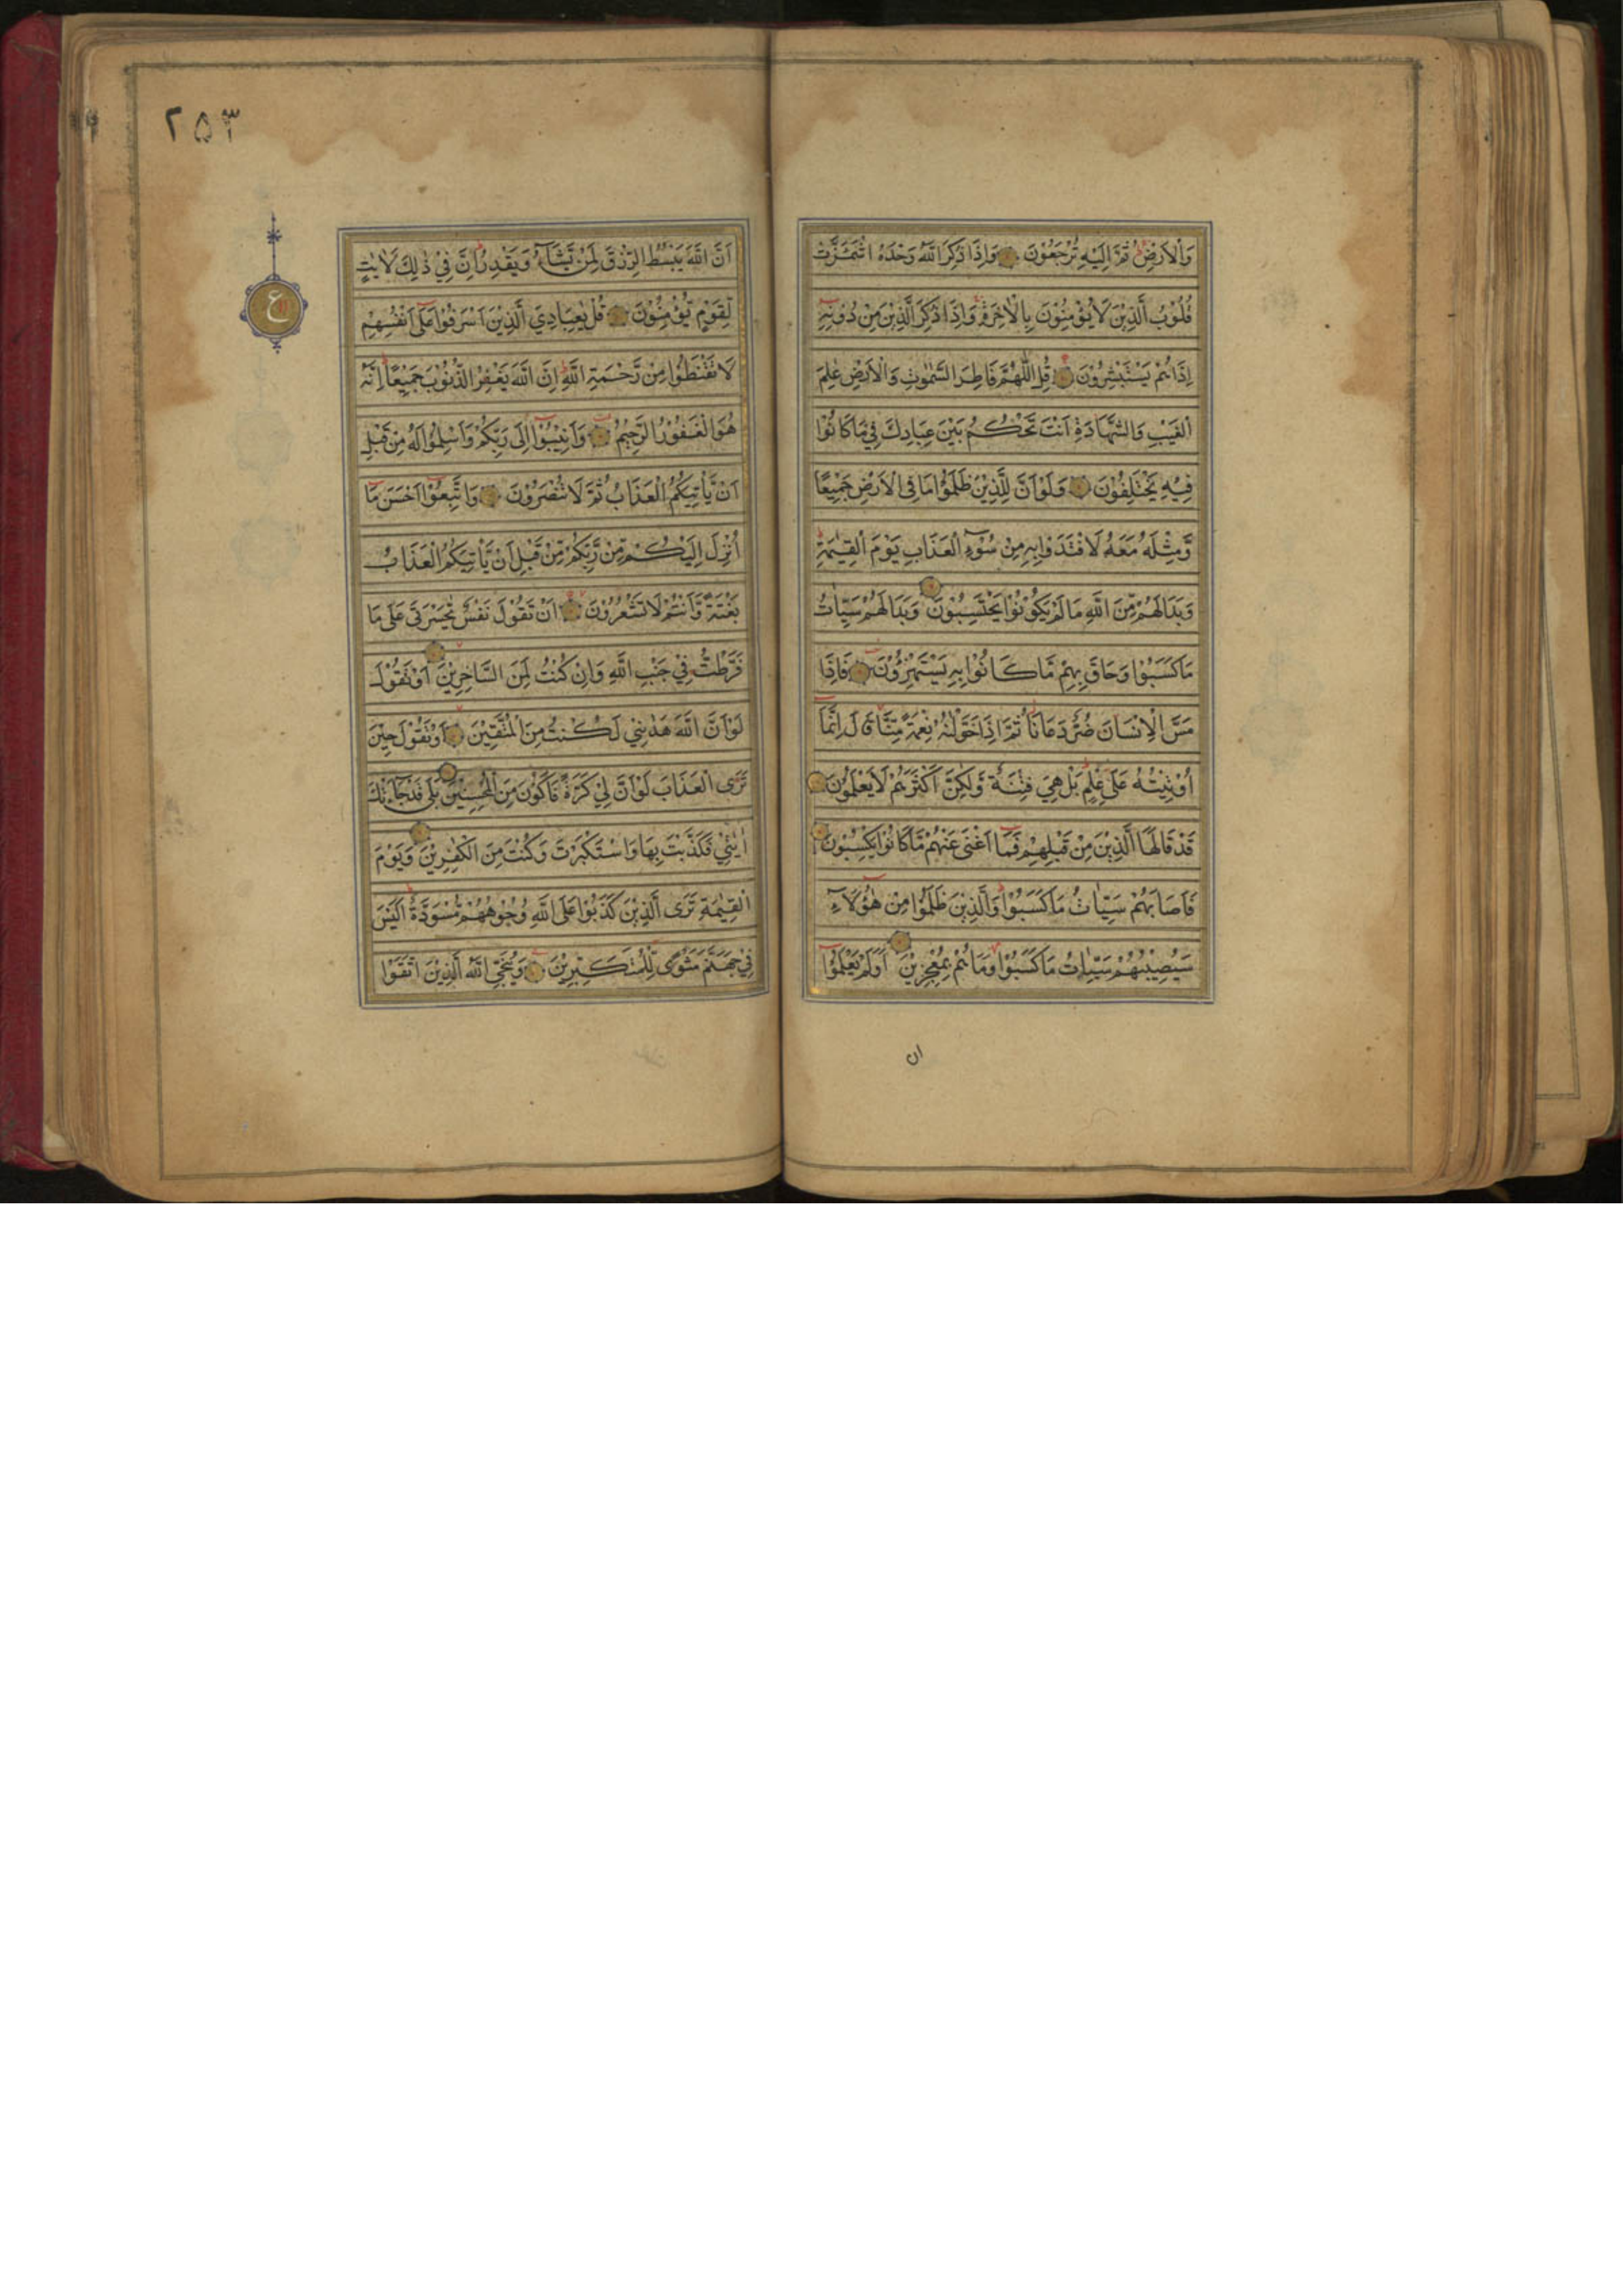 وَالْاَرْضِ ثُمَّ اِلَيْهِ تُرْجَعُوْنَ وَاِذَا ذُكِرَ اللّٰهُ وَحْدَهُ اشْمَئَزَّتْ
قُلُوْبُ الَّذِيْنَ لَا يُؤْمِنُوْنَ بِالْاٰخِرَةِ وَاِذَا ذُكِرَ الَّذِيْنَ مِنْ دُوْنِهٖ
اِذَا هُمْ يَسْتَبْشِرُوْنَ قُلِ اللّٰهُمَّ فَاطِرَ السَّمٰوٰتِ وَالْاَرْضِ عٰلِمَ
الْغَيْبِ وَالشَّهَادَةِ اَنْتَ تَحْكُمُ بَيْنَ عِبَادِكَ فِيْ مَا كَانُوْا
فِيْهِ يَخْتَلِفُوْنَ وَلَوْ اَنَّ لِلَّذِيْنَ ظَلَمُوْا مَا فِى الْاَرْضِ جَمِيْعًا
وَّمِثْلَهٗ مَعَهٗ لَافْتَدَوْا بِهٖ مِنْ سُوْٓءِ الْعَذَابِ يَوْمَ الْقِيٰمَةِ
وَبَدَا لَهُمْ مِّنَ اللّٰهِ مَا لَمْ يَكُوْنُوْا يَحْتَسِبُوْنَ وَبَدَا لَهُمْ سَيِّاٰتُ
مَا كَسَبُوْا وَحَاقَ بِهِمْ مَّا كَانُوْا بِهٖ يَسْتَهْزِؤُوْنَ فَاِذَا
مَسَّ الْاِنْسَانَ ضُرٌّ دَعَانَا ثُمَّ اِذَا خَوَّلْنٰهُ نِعْمَةً مِّنَّا قَالَ اِنَّمَا
اُوْتِيْتُهٗ عَلٰى عِلْمٍ بَلْ هِيَ فِتْنَةٌ وَّلٰكِنَّ اَكْثَرَهُمْ لَا يَعْلَمُوْنَ
قَدْ قَالَهَا الَّذِيْنَ مِنْ قَبْلِهِمْ فَمَا اَغْنٰى عَنْهُمْ مَّا كَانُوْا يَكْسِبُوْنَ
فَاَصَابَهُمْ سَيِّاٰتُ مَا كَسَبُوْا وَالَّذِيْنَ ظَلَمُوْا مِنْ هٰٓؤُلَاۤءِ
سَيُصِيْبُهُمْ سَيِّاٰتُ مَا كَسَبُوْا وَمَا هُمْ بِمُعْجِزِيْنَ اَوَلَمْ يَعْلَمُوْا
ان
٢٥٣
ع
اَنَّ اللّٰهَ يَبْسُطُ الرِّزْقَ لِمَنْ يَّشَاۤءُ وَيَقْدِرُ اِنَّ فِيْ ذٰلِكَ لَاٰيٰتٍ
لِّقَوْمٍ يُّؤْمِنُوْنَ قُلْ يٰعِبَادِيَ الَّذِيْنَ اَسْرَفُوْا عَلٰى اَنْفُسِهِمْ
لَا تَقْنَطُوْا مِنْ رَّحْمَةِ اللّٰهِ اِنَّ اللّٰهَ يَغْفِرُ الذُّنُوْبَ جَمِيْعًا اِنَّهٗ
هُوَ الْغَفُوْرُ الرَّحِيْمُ وَاَنِيْبُوْا اِلٰى رَبِّكُمْ وَاَسْلِمُوْا لَهٗ مِنْ قَبْلِ
اَنْ يَّأْتِيَكُمُ الْعَذَابُ ثُمَّ لَا تُنْصَرُوْنَ وَاتَّبِعُوْا اَحْسَنَ مَا
اُنْزِلَ اِلَيْكُمْ مِّنْ رَّبِّكُمْ مِّنْ قَبْلِ اَنْ يَّأْتِيَكُمُ الْعَذَابُ
بَغْتَةً وَّاَنْتُمْ لَا تَشْعُرُوْنَ اَنْ تَقُوْلَ نَفْسٌ يّٰحَسْرَتٰى عَلٰى مَا
فَرَّطْتُّ فِيْ جَنْبِ اللّٰهِ وَاِنْ كُنْتُ لَمِنَ السَّاخِرِيْنَ اَوْ تَقُوْلَ
لَوْ اَنَّ اللّٰهَ هَدٰىنِيْ لَكُنْتُ مِنَ الْمُتَّقِيْنَ اَوْ تَقُوْلَ حِيْنَ
تَرَى الْعَذَابَ لَوْ اَنَّ لِيْ كَرَّةً فَاَكُوْنَ مِنَ الْمُحْسِنِيْنَ بَلٰى قَدْ جَاۤءَتْكَ
اٰيٰتِيْ فَكَذَّبْتَ بِهَا وَاسْتَكْبَرْتَ وَكُنْتَ مِنَ الْكٰفِرِيْنَ وَيَوْمَ
الْقِيٰمَةِ تَرَى الَّذِيْنَ كَذَبُوْا عَلَى اللّٰهِ وُجُوْهُهُمْ مُّسْوَدَّةٌ اَلَيْسَ
فِيْ جَهَنَّمَ مَثْوًى لِّلْمُتَكَبِّرِيْنَ وَيُنَجِّى اللّٰهُ الَّذِيْنَ اتَّقَوْا